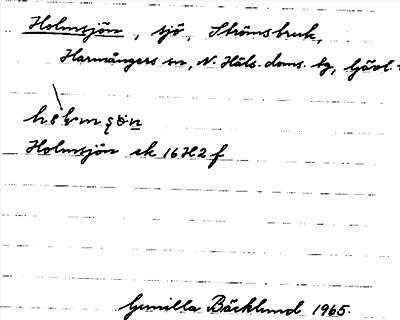 Holmsjön, sjö, Strömsbruk,
Harmångers sn, N. Häls. doms. by, Gävl
Holmsjön ek 16H2f
Gunilla Bäcklund 1965.